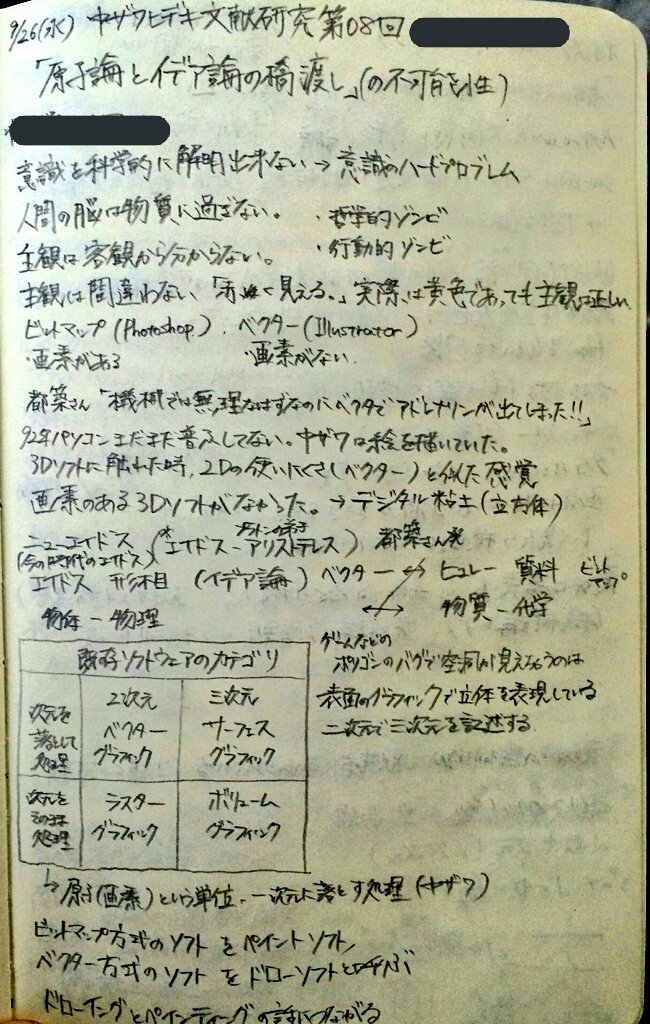 9/26(水) 中ザワヒデキ文献研究第08回
「原子論とイデア論の橋渡し」(の不可能性)
意識を科学的に解明出来ない→意識のハードプロブレム
人間の脳は物質に過ぎない。 ・哲学的ゾンビ
・行動的ゾンビ
主観は客観から分からない。
主観は間違わない「赤く見える。」実際は黄色であっても主観は正しい
ビットマップ(Photoshop). ベクター(Illustrator)
・画素がある ・画素がない
都築さん「機械では無理なはずなのにベクタでアドレナリンが出てしまった!!」
92年パソコンまだまだ普及してない。中ザワは絵を描いていた。
3Dソフトに触れた時、2Dの使いにくさ(ベクター)と似た感覚
画素のある3Dソフトがなかった。→デジタル粘土(立方体)
ニューエイドス (※エイドス-アリストテレス) 都築さん発
プラトンの弟子
(今の時代のエイドス)
エイドス 形相 (イデア論) ベクター ↔ ヒュレー 質料 ビットマップ
物体-物理 ↔ 物質-化学
既存ソフトウェアのカテゴリ
次元を落として処理
2次元ベクターグラフィック
三次元サーフェスグラフィック
次元をそのまま処理
ラスターグラフィック
ボリュームグラフィック
ゲームなどの
ポリゴンのバグで空洞が見えちゃうのは
表面のグラフィックで立体を表現している
二次元で三次元を記述する
↳原子(画素)という単位、一次元に落とす処理(中ザワ)
ビットマップ方式のソフトをペイントソフト,
ベクター方式のソフトをドローソフトと呼ぶ
ドローイングとペインティングの話につながる